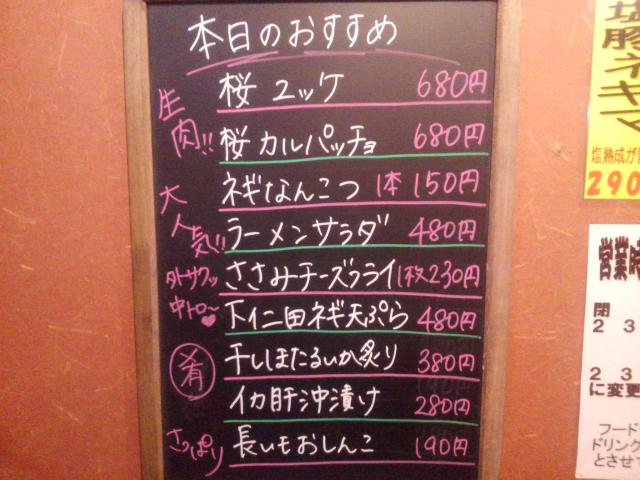 本日のおすすめ
生肉!!
桜 ユッケ 680円
桜 カルパッチョ 680円
ネギなんこつ 1本 150円
大人気!!
ラーメンサラダ 480円
外サクッ
中トロ〜♥
ささみチーズフライ 1枚 230円
下仁田ネギ天ぷら 480円
肴
干しほたるいか炙り 380円
イカ肝沖漬け 280円
さっぱり
長いもおしんこ 190円
塩豚ネギマ
塩熟成が
290
営業時
閉
2 3
2 3
に変更
フード
ドリンク
とさせて